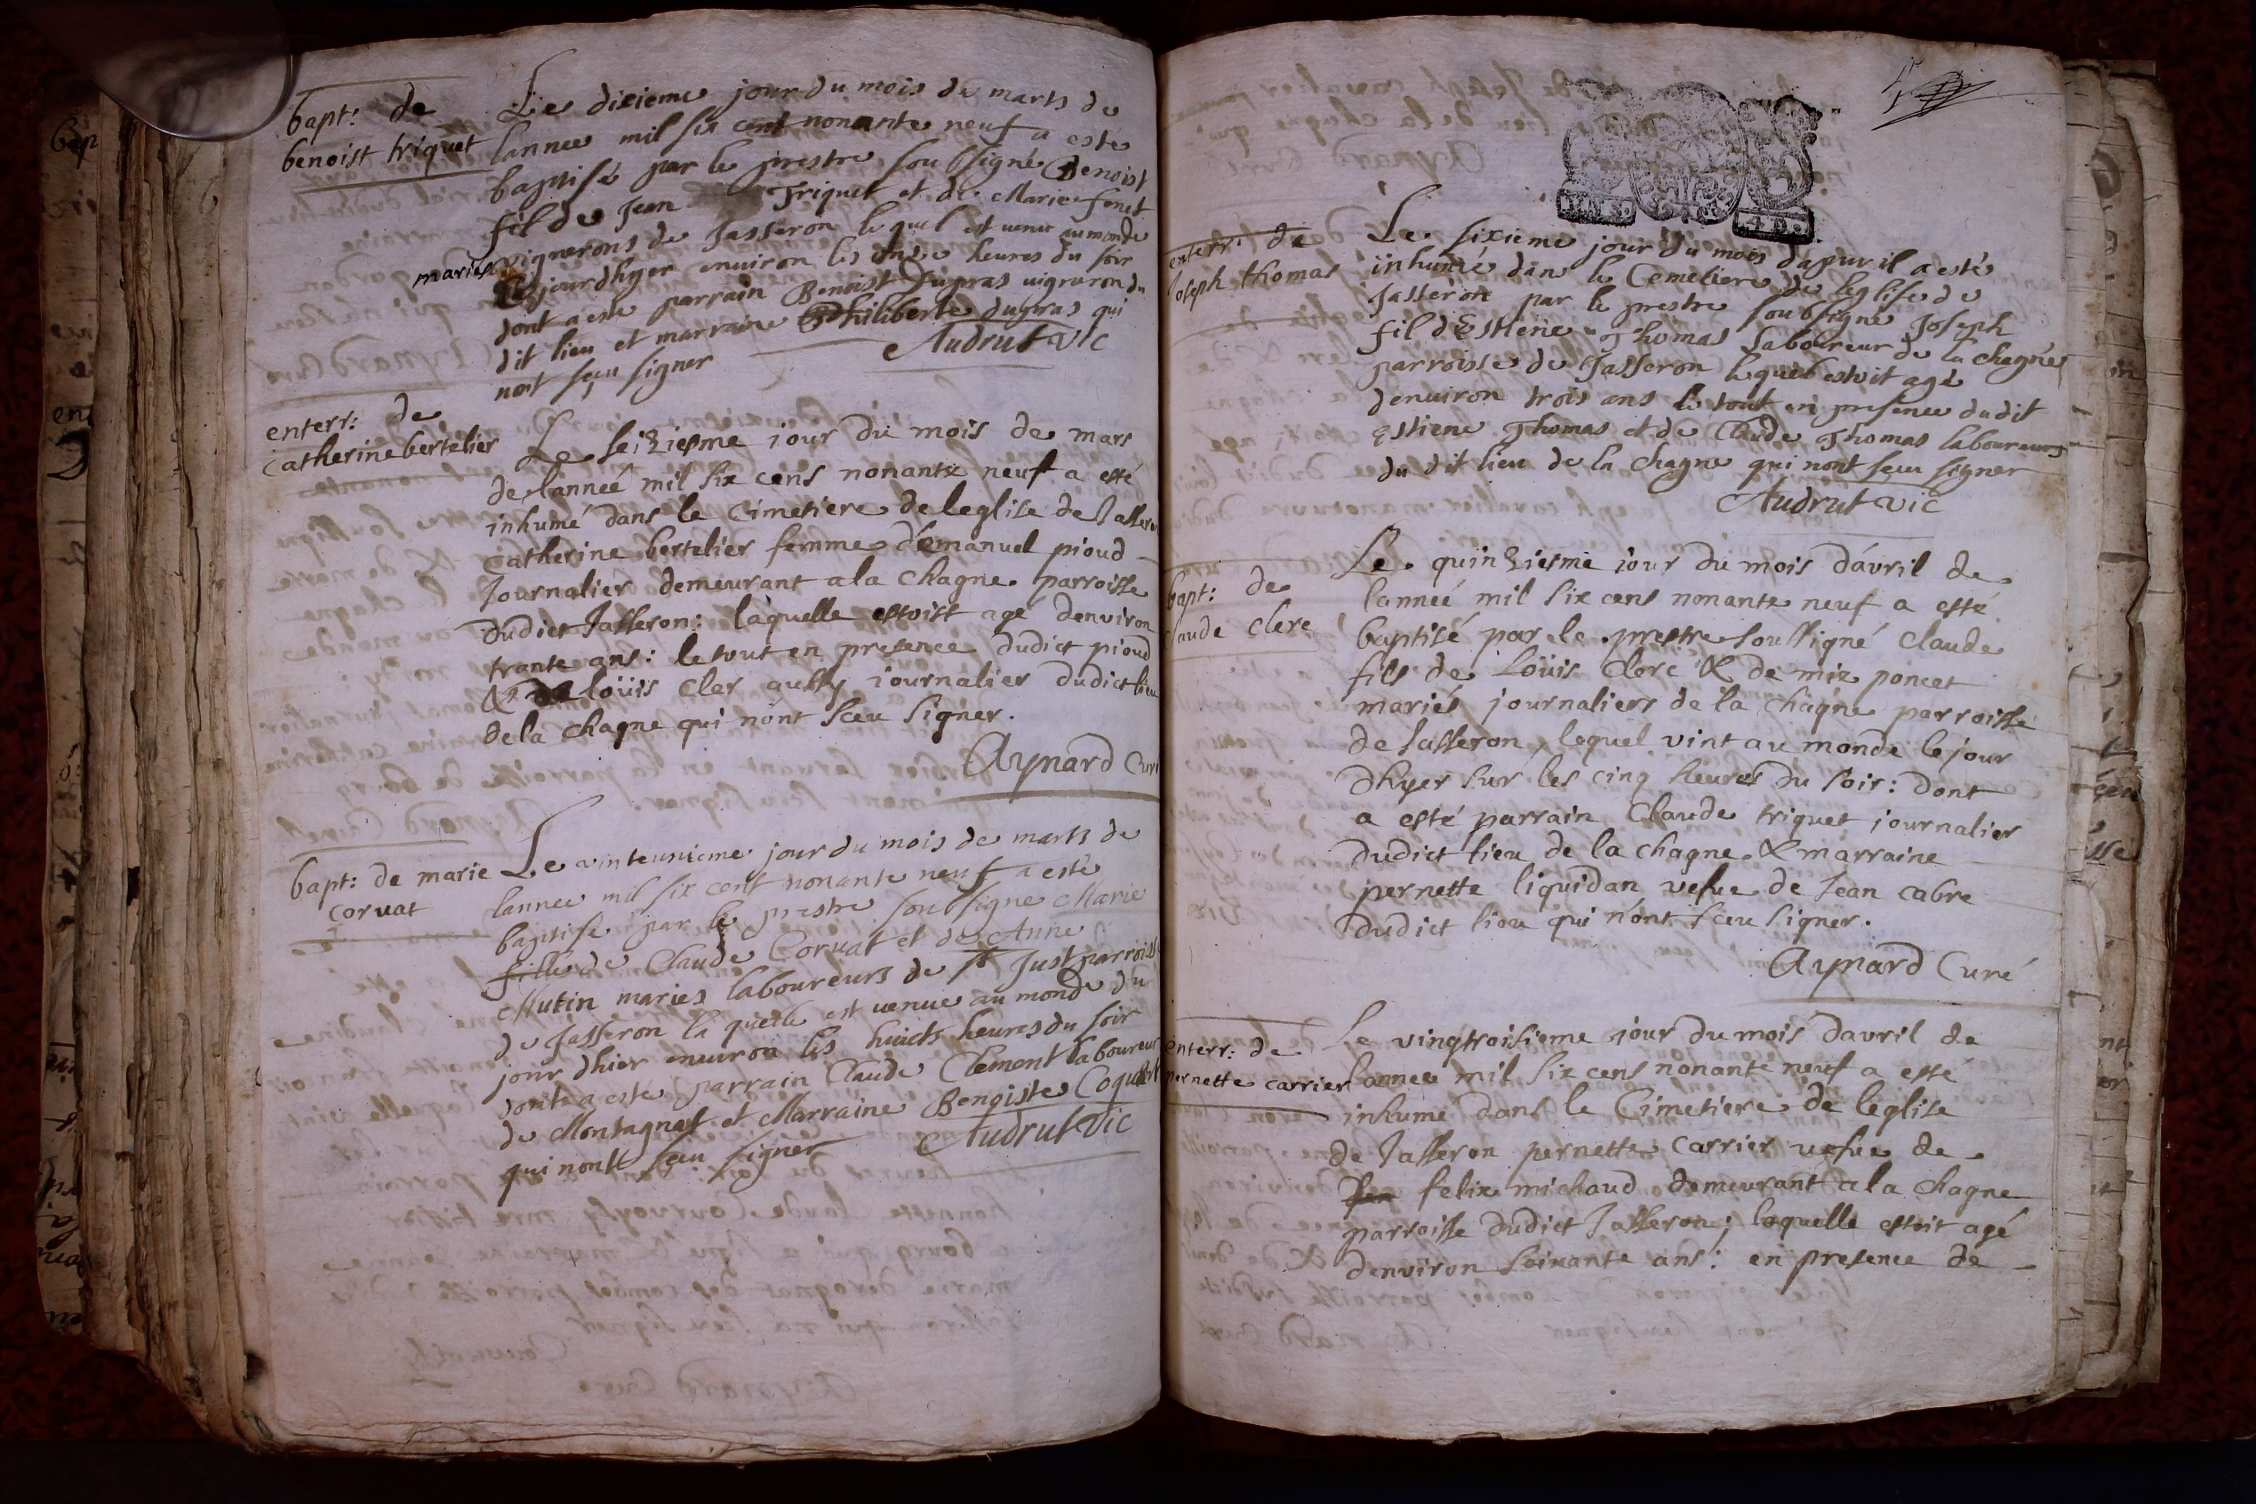 bapt: de
benoist triquet
Le dixieme jour du mois de marts de
lannee mil six cent nonante neuf a esté
baptisé par le prestre soubsigné Benoist
fil de Jean Triquet et de Marie fenet
mariés vignerons de Jasseron lequel est venu au monde
jourdhyer environ les onze heures du soir
dont a esté parrain Benoist Dupras vigneron du
dit lieu et marraine Philiberte dupras qui
nont sçeu signer
Audrut vic
enterr: de
Catherine bertelier
Le seiziesme jour du mois de mars
de lanneé mil six cens nonante neuf a esté
inhumé dans le Cimetiere de leglise de Jasseron
Catherine bertelier femme d'émanuel pioud
Journalier demeurant a la Chagne parroisse
dudict Jasseron: laquelle estoitt agé denviron
trante ans: le tout en presence dudict pioud
& de loüis cler aussy journalier dudict lieu
de la chagne qui nónt sceu signer.
Aynard Curé
bapt: de marie
Corvat
Le vinteunieme jour du mois de marts de
lannee mil six cent nonante neuf a esté
baptisé par le prestre soubsigne Marie
fille de Claude Corvat et de Anne
Mutin mariés laboureurs de st Just parroisse
de Jasseron la quelle est venue au monde du
jour dhier environ les huicts heures du soir
dont a esté parrain Claude Clement laboureur
de Montagnat et Marraine Benoiste
qui nont sceu signer
Audrut Vic
enterr: de
Joseph thomas
Le sixieme jour du mois dapuvril a esté
inhumé dan le Cemetiere de leglise de
Jasseron par le prestre soubsigné Joseph
fil dEstiene Thomas Laboureur de la chagne
parroisse de Jasseron lequel estoit agé
denviron trois ans le tout en presence dudit
Estiene Thomas et de Claude Thomas laboureurs
du dit lieu de la chagne qui nont sceu signer
Audrut vic
bapt: de
laude clerc
Le quinziesme jour du mois dávril de
lanneé mil six cens nonante neuf a esté
baptisé par le prestre soussigné Claude
fils de Loüis Clerc & de mie poncet
mariés journaliers de la Chágne parroisse
de Jasseron, lequel vint au monde le jour
dhyer sur les cinq heures du soir: dont
a esté parrain Claude triquet journalier
dudict lieu de la chagne & marraine
pernette liquidan vefue de Jean cabre
dudict lieu qui n'ónt sceu signer.
Aynard Curé
enterr: de
pernette carrier
Le vingtroisieme jour du mois davril de
lannee mil six cens nonante neuf a esté
inhumé dans le Cimetiere de léglise
de Jasseron pernette carrier vefue de
feu felix michaud demeurant a la chagne
parroisse dudict Jasseron; laquelle estoit agé
denviron soixante ans: en presence de